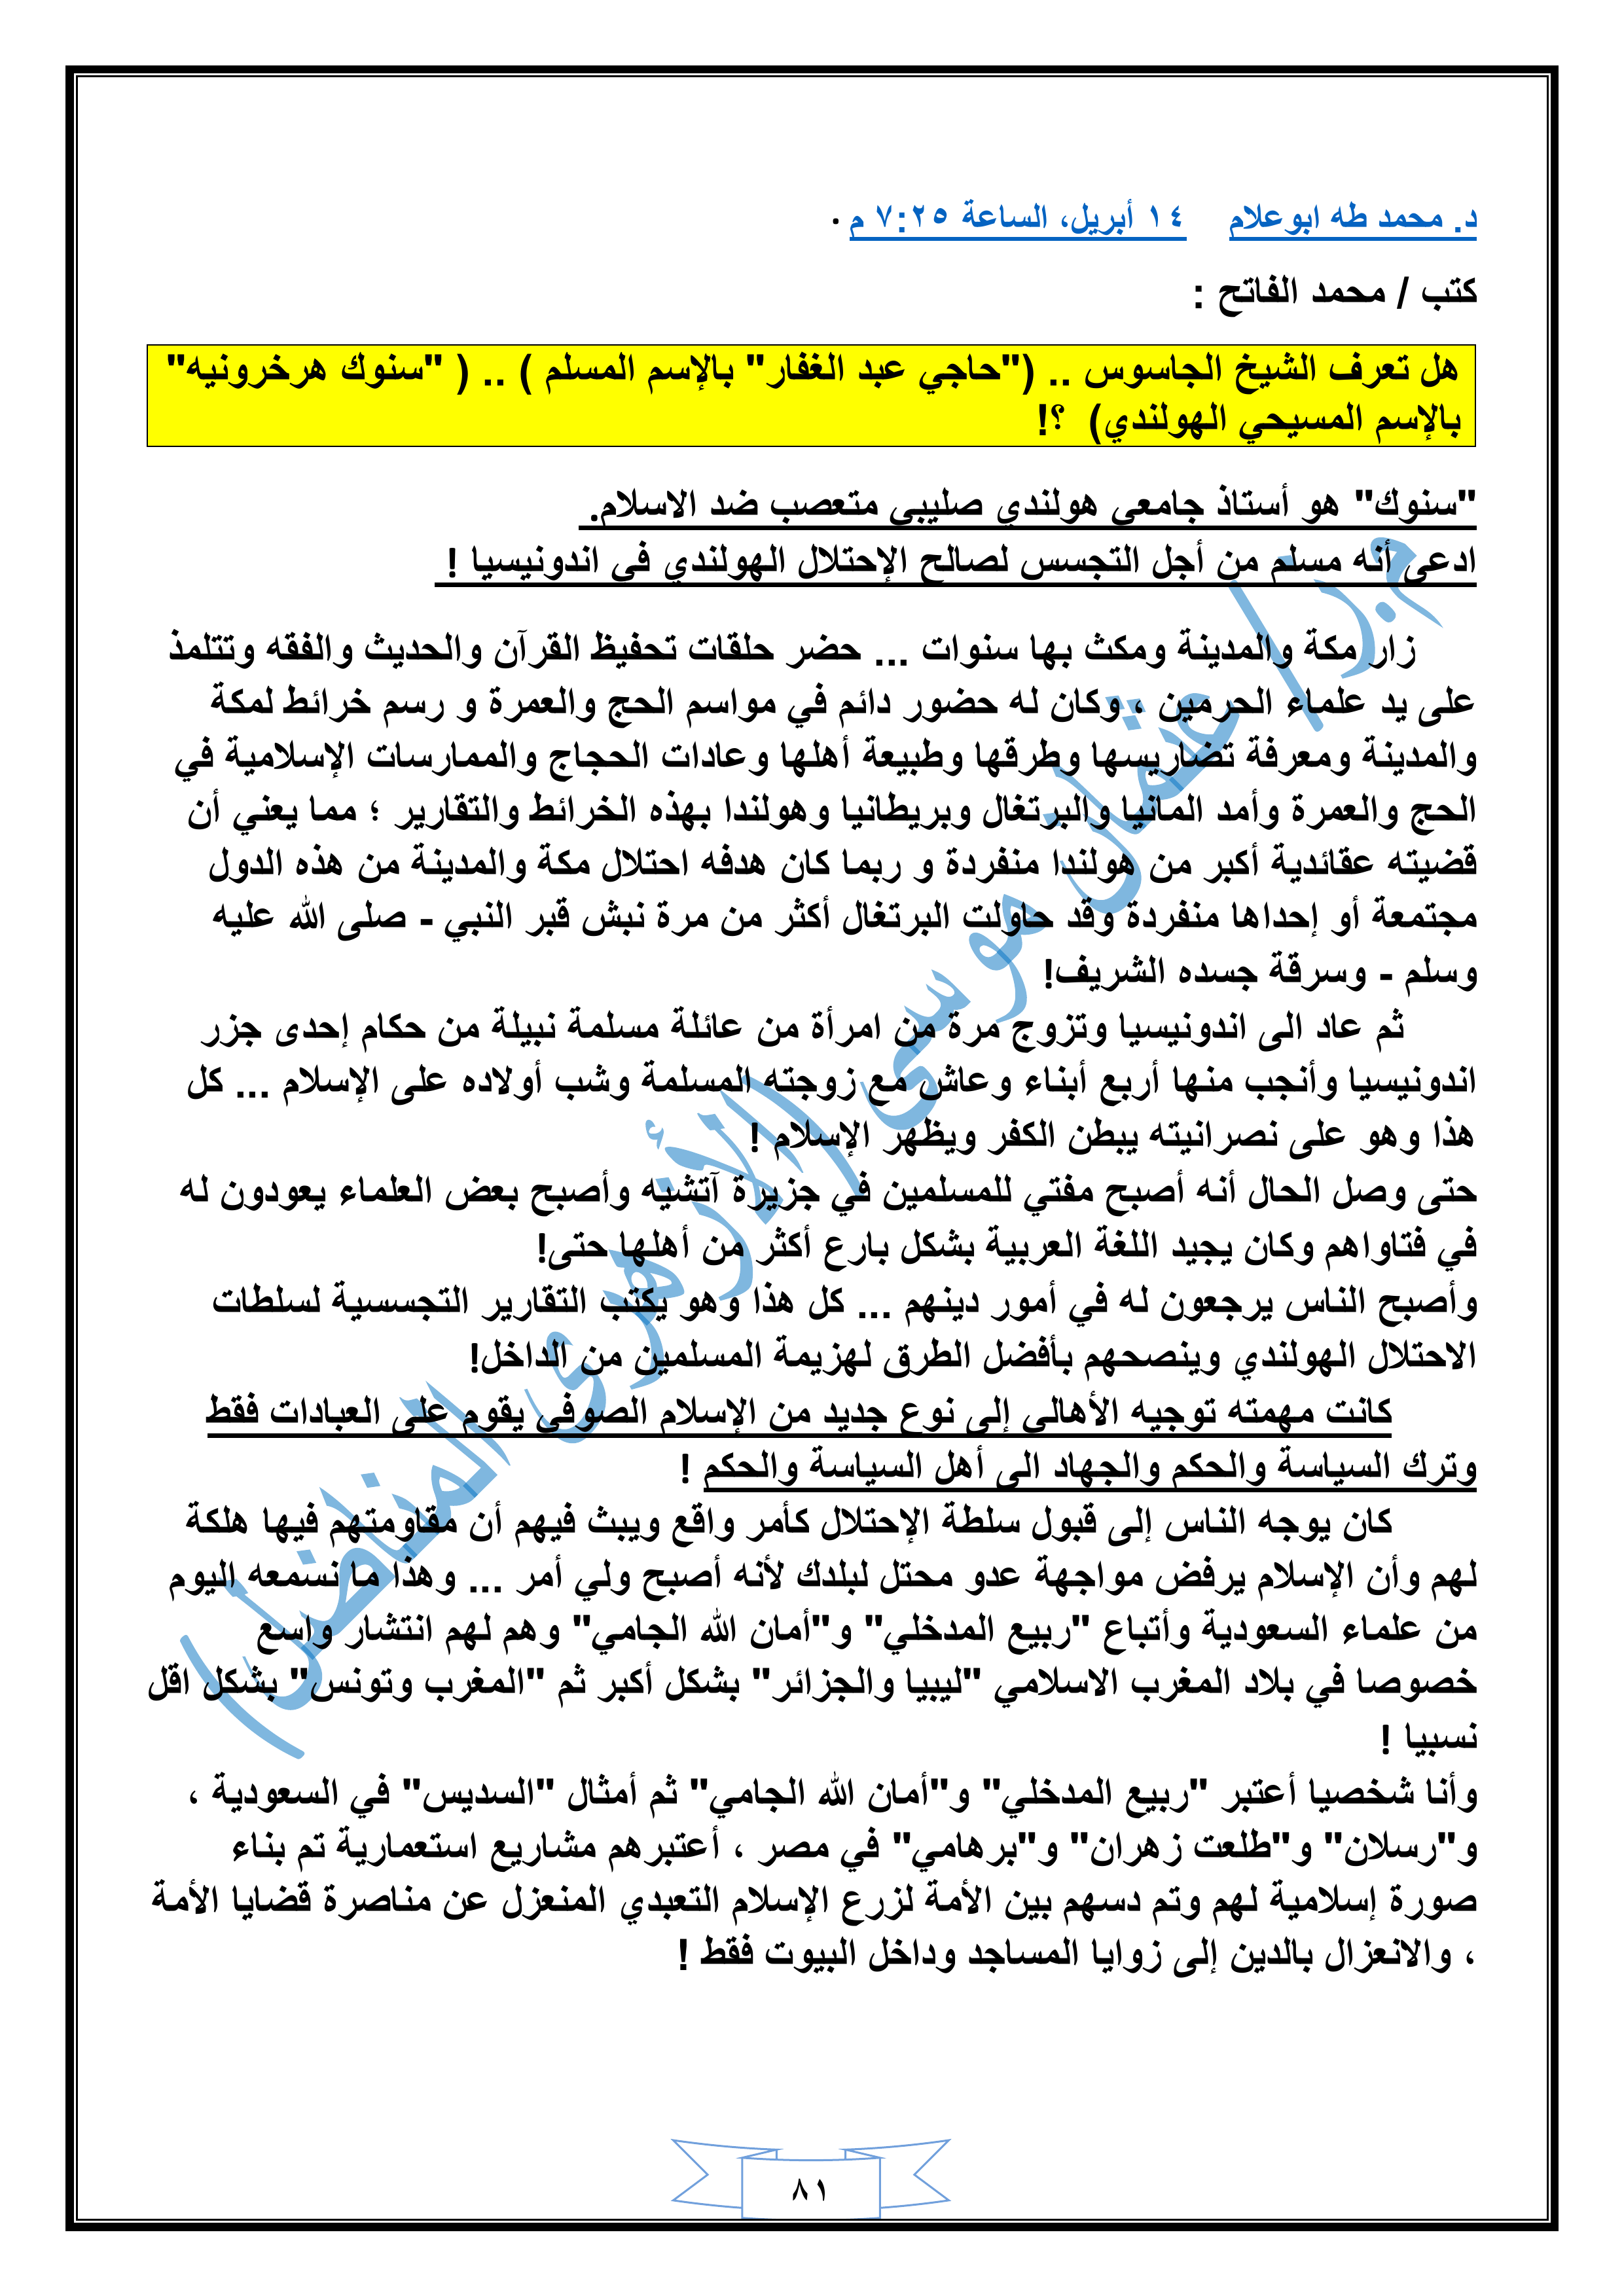 د. محمد طه ابوعلام    ١٤ أبريل، الساعة ٧:٢٥ م ·
كتب / محمد الفاتح :
هل تعرف الشيخ الجاسوس .. ("حاجي عبد الغفار" بالإسم المسلم ) .. ( "سنوك هرخرونيه"
بالإسم المسيحي الهولندي)  ؟!
"سنوك" هو أستاذ جامعي هولندي صليبي متعصب ضد الاسلام.
ادعى أنه مسلم من أجل التجسس لصالح الإحتلال الهولندي في اندونيسيا !
زار مكة والمدينة ومكث بها سنوات ... حضر حلقات تحفيظ القرآن والحديث والفقه وتتلمذ
على يد علماء الحرمين ، وكان له حضور دائم في مواسم الحج والعمرة و رسم خرائط لمكة
والمدينة ومعرفة تضاريسها وطرقها وطبيعة أهلها وعادات الحجاج والممارسات الإسلامية في
الحج والعمرة وأمد المانيا والبرتغال وبريطانيا وهولندا بهذه الخرائط والتقارير ؛ مما يعني أن
قضيته عقائدية أكبر من هولندا منفردة و ربما كان هدفه احتلال مكة والمدينة من هذه الدول
مجتمعة أو إحداها منفردة وقد حاولت البرتغال أكثر من مرة نبش قبر النبي - صلى الله عليه
وسلم - وسرقة جسده الشريف!
ثم عاد الى اندونيسيا وتزوج مرة من امرأة من عائلة مسلمة نبيلة من حكام إحدى جزر
اندونيسيا وأنجب منها أربع أبناء وعاش مع زوجته المسلمة وشب أولاده على الإسلام ... كل
هذا وهو على نصرانيته يبطن الكفر ويظهر الإسلام !
حتى وصل الحال أنه أصبح مفتي للمسلمين في جزيرة آتشيه وأصبح بعض العلماء يعودون له
في فتاواهم وكان يجيد اللغة العربية بشكل بارع أكثر من أهلها حتى!
وأصبح الناس يرجعون له في أمور دينهم ... كل هذا وهو يكتب التقارير التجسسية لسلطات
الاحتلال الهولندي وينصحهم بأفضل الطرق لهزيمة المسلمين من الداخل!
كانت مهمته توجيه الأهالي إلى نوع جديد من الإسلام الصوفي يقوم على العبادات فقط
وترك السياسة والحكم والجهاد الى أهل السياسة والحكم !
كان يوجه الناس إلى قبول سلطة الإحتلال كأمر واقع ويبث فيهم أن مقاومتهم فيها هلكة
لهم وأن الإسلام يرفض مواجهة عدو محتل لبلدك لأنه أصبح ولي أمر ... وهذا ما نسمعه اليوم
من علماء السعودية وأتباع "ربيع المدخلي" و"أمان الله الجامي" وهم لهم انتشار واسع
خصوصا في بلاد المغرب الاسلامي "ليبيا والجزائر" بشكل أكبر ثم "المغرب وتونس" بشكل اقل
نسبيا !
وأنا شخصيا أعتبر "ربيع المدخلي" و"أمان الله الجامي" ثم أمثال "السديس" في السعودية ،
و"رسلان" و"طلعت زهران" و"برهامي" في مصر ، أعتبرهم مشاريع استعمارية تم بناء
صورة إسلامية لهم وتم دسهم بين الأمة لزرع الإسلام التعبدي المنعزل عن مناصرة قضايا الأمة
، والانعزال بالدين إلى زوايا المساجد وداخل البيوت فقط !
م.ر/ عثمان موسى (الأزهرى المناضل)
٨١